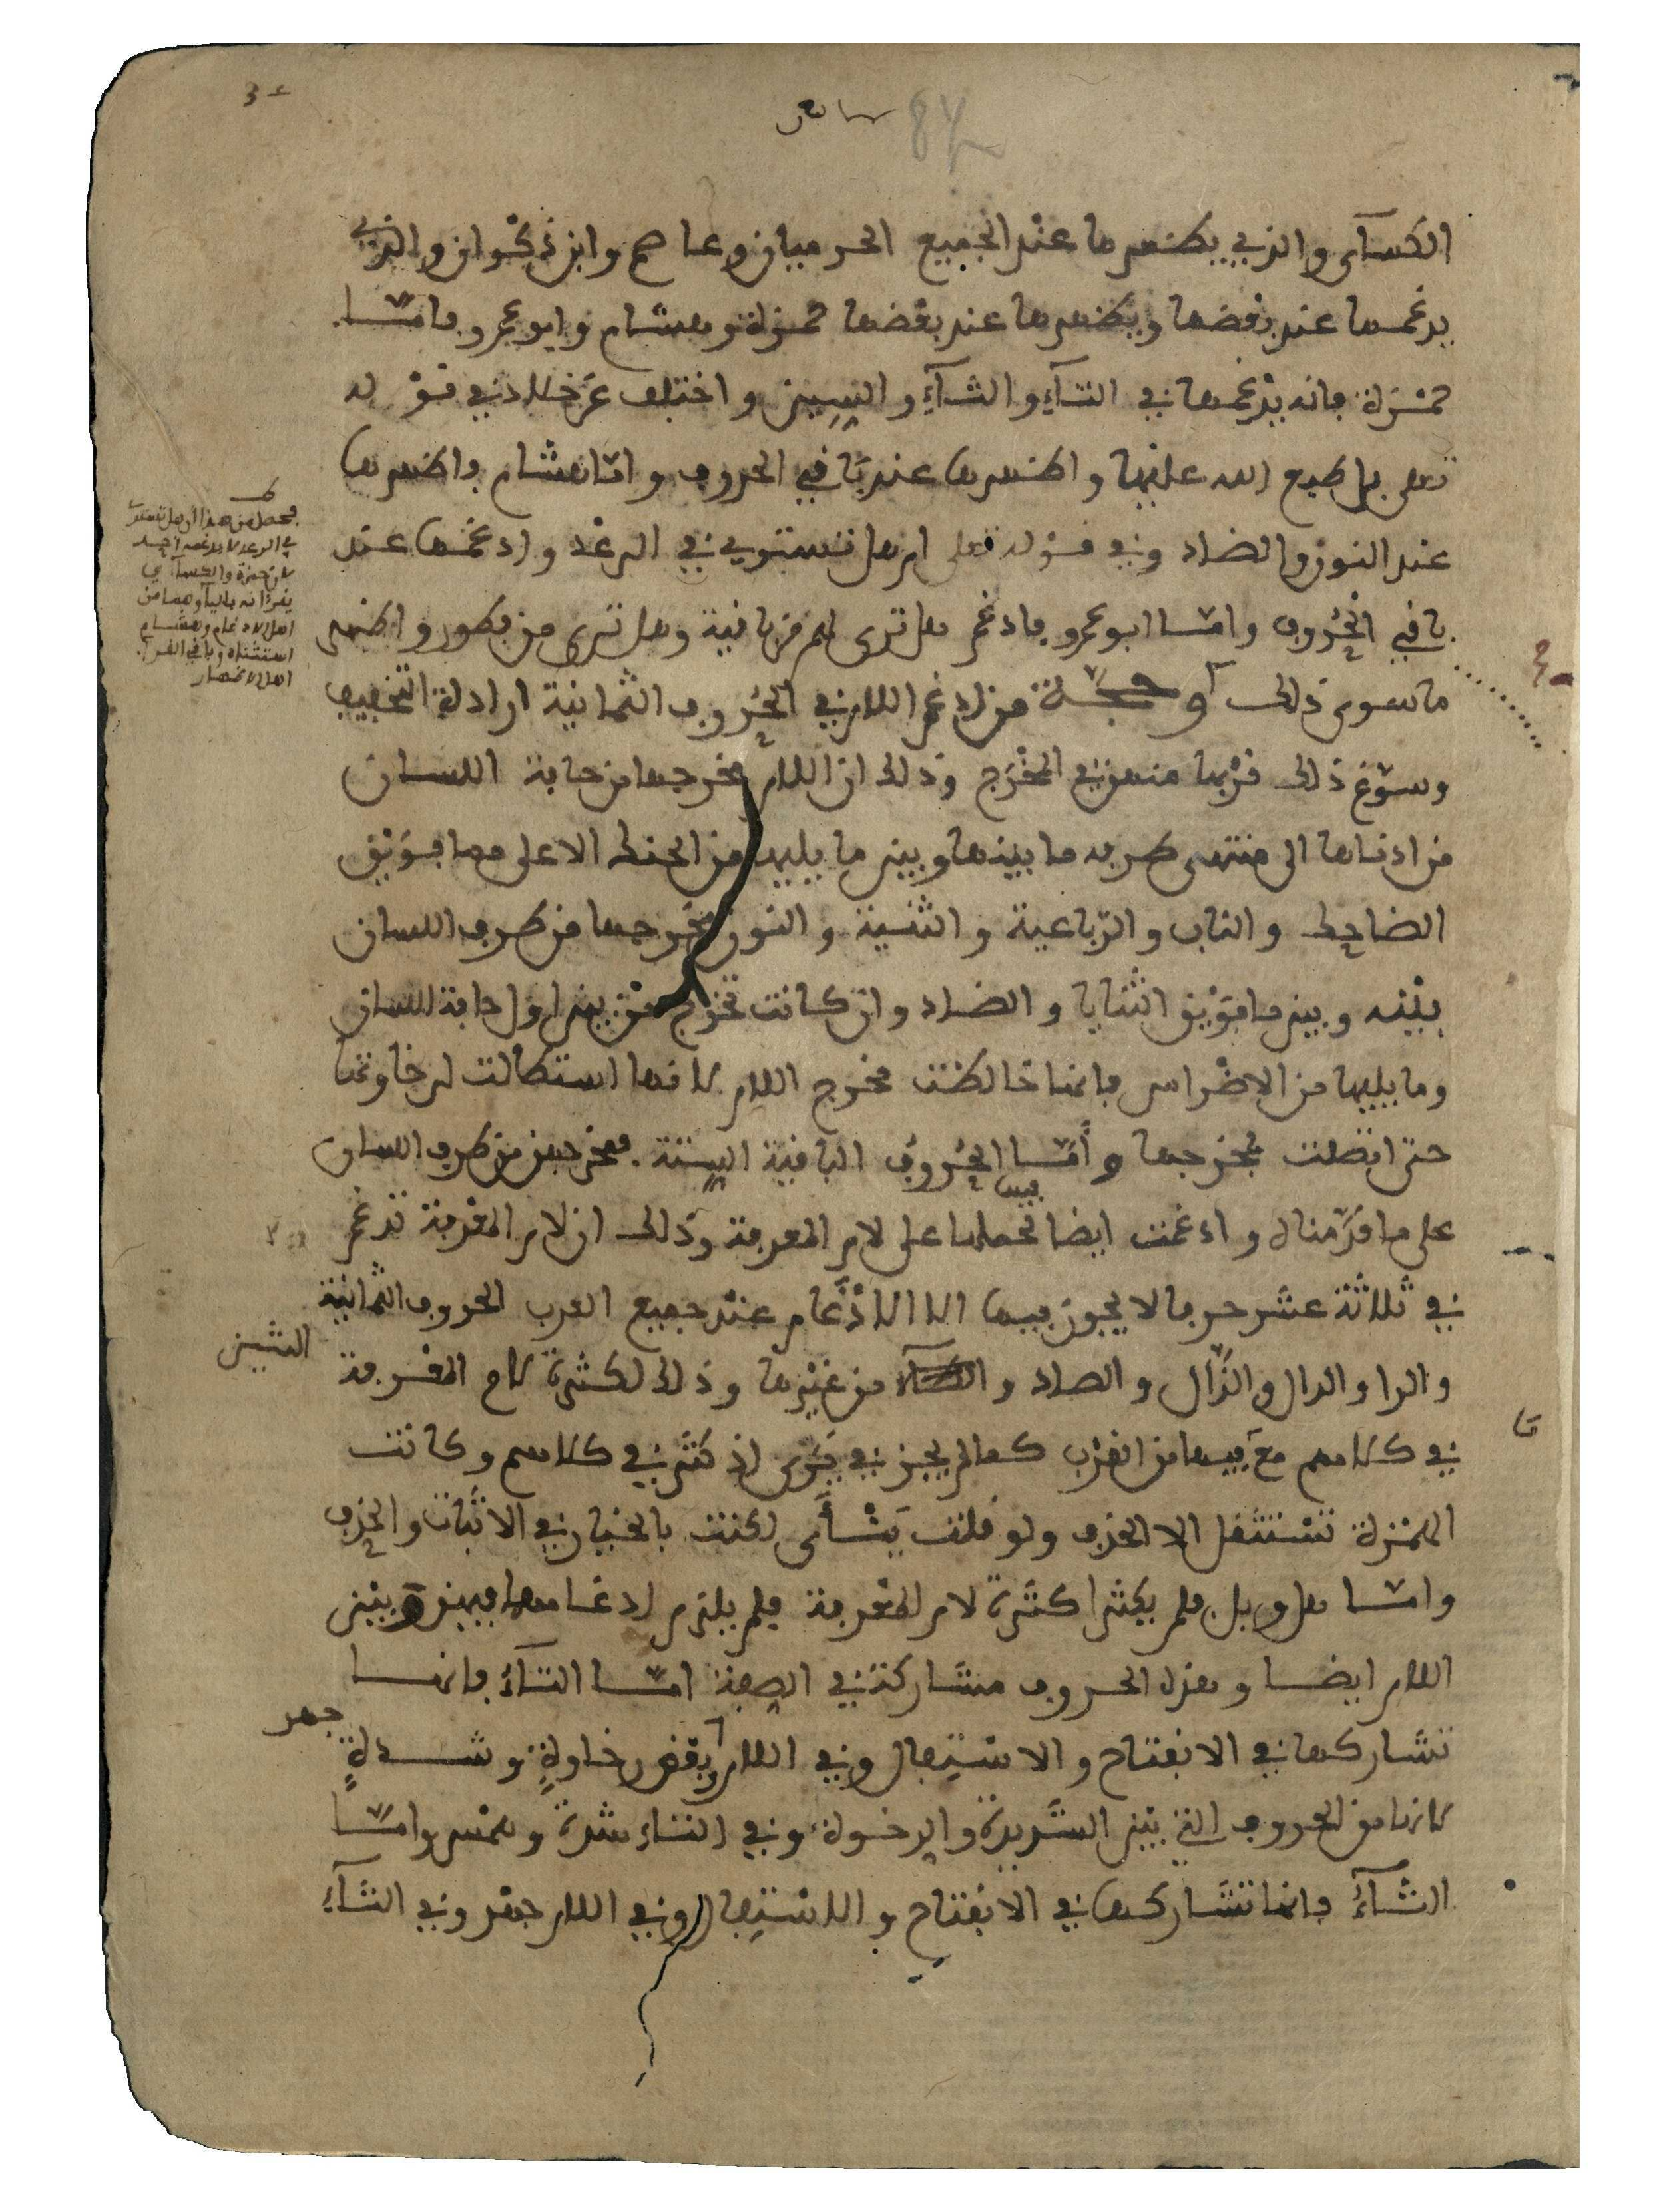 سابع
84
الكسآى والذي يظهرها عند الجميع الحرميان وعاصم وابن ذكوان والذي
يدغمها عند بعضها ويظهرها عند بعضها حمزة وهشام وابو عمرو فامّا
حمزة فانه يدغمها في التآءِ والثآءِ والسين واختلف عن خلاد في قوله
تعلى بل طبع الله عليها واظهرها عند باقي الحروف وامّا هشام فاظهرها
عند النون والضاد وفي قوله تعلى ام هل تستوي في الرعد وادغمها عند
باقي الحُروف وامّا ابو عمرو فادغم هل ترى لهم من باقية وهل ترى من فطور واظهر
ما سوى ذلك وحجّة من ادغم اللام في الحُروف الثمانية ارادة التخفيف
وسوّغ ذلك قربها منهن في المخرَج وذلك ان اللام مخرجها من حافة اللسان
من ادناها الى منتهى طرفه ما بينها وبين ما يليها من الحنك الاعلى مما فويق
الضاحك والناب والرّباعية والثنية والنون مخرجها من طرف اللسان
بينه وبين ما فويق الثنايا والضاد وان كانت تخرج من بين اول حافة اللسان
وما يليها من الاضراس فانها خالطت مخرج اللام لانها استطالت لرخاوتها
حتى اتصلت بمخرجها وأمّا الحُروف الباقية الستة فمخرجهن من طرف اللسان
على ما قدّمناه وادغمت ايضا لحملها على لام المعرفة وذلك ان لام المعرفة تدغم
في ثلاثة عشر حرفا لا يجوز فيها الا الادّغام عند جميع العرب الحروف الثمانية
والرا والدال والذّال والصاد و من غيرها وذلك لكثرة لام المعرفة
الشين
في كلامهم مع فيها من القرب كما لم يجز في يَرى اذ كثر في كلامهم وكانت
الهمزة تستثقل الا الحذف ولو قلت يَنْأَى لكنت بالخيار في الاثبات والحذف
وامّا هل وبل فلم يكثرا كثرة لام المعرفة فلم يلزم ادغامهما فيهن وبين
اللام ايضا وهذه الحروف مشاركة في الصفة امّا التآءُ فانها
تشاركها في الانفتاح والاستِفال وفي اللام بعض رخاوةٍ وشدةٍ
جهر
لانها من الحروف التي بين الشديدة والرخوة وفي التاء شدة وهمس وامّا
الثآءُ فانها تشاركها في الانفتاح والاستِفال وفي اللام جهر وفي الثآءِ
فحصل من هذا ان هل تستوي
في الرعد لا يدغمه احد
لان حمزة والكسآءي
يقرءانه باليآء وهما من
اهل الادغام وهشام
استثناه وباقي القرا
اهل الاظهار